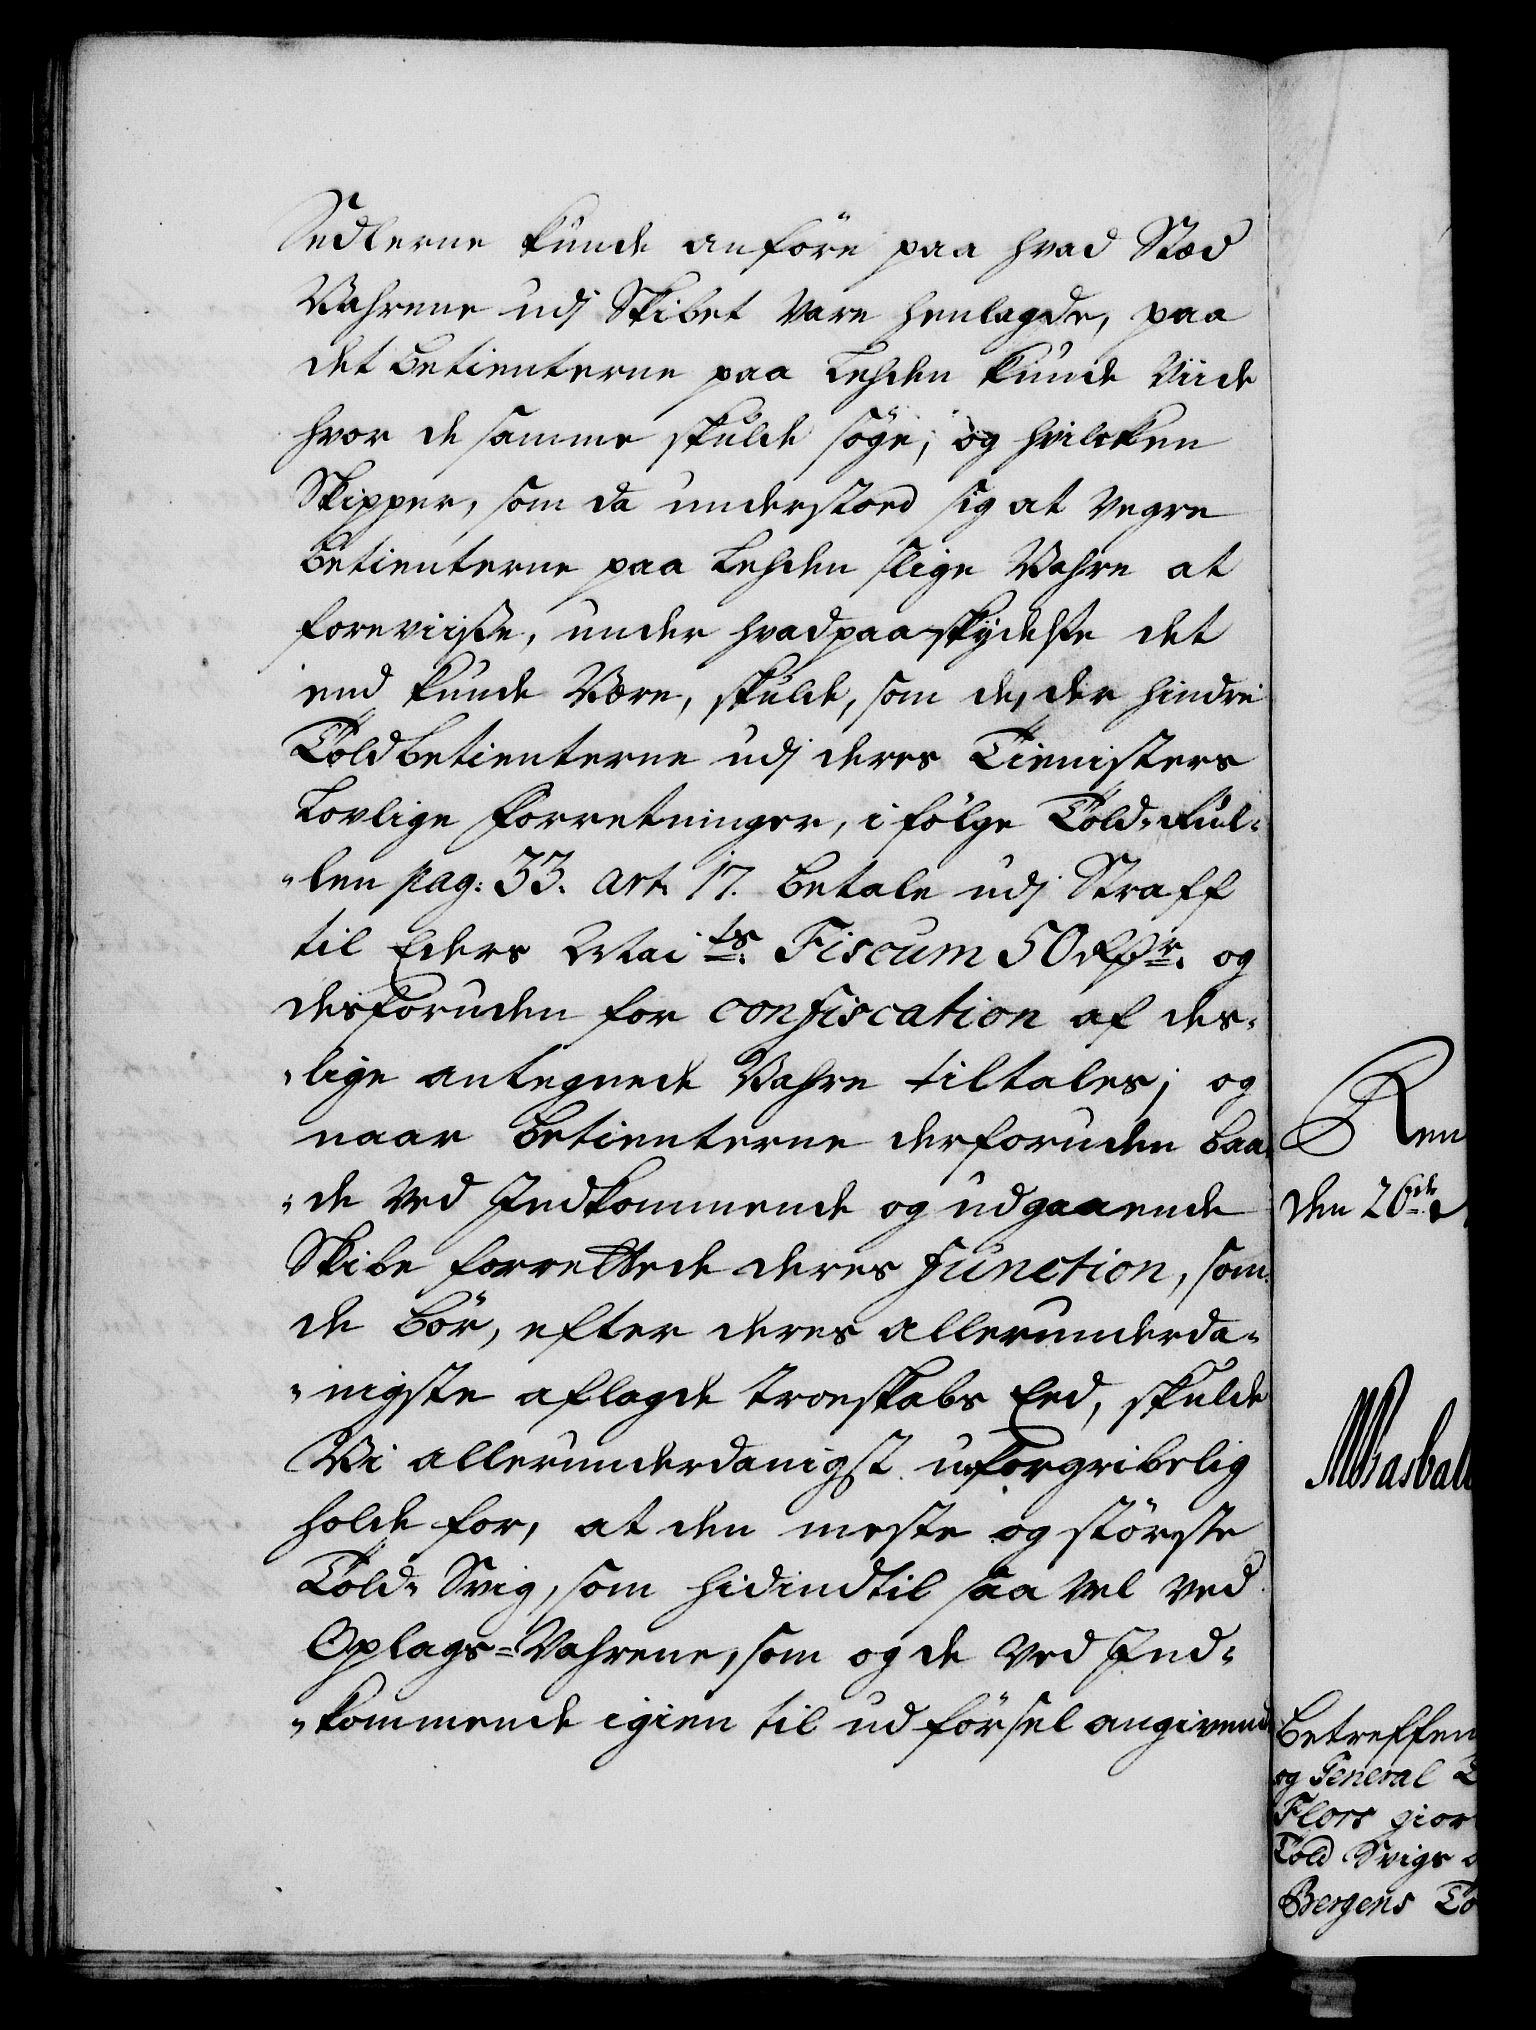 Sedlerne kunde anföre paa hvad Stæd
Wahrene udj Skibet vare henlagde, paa
det Betienterne paa Rehden kunde viide
hvor de samme skulde söge; og hvilcken
Skipper, som da understoed sig at vegre
Betienterne paa Rehden slige Wahre at
foreviisse, under hvad paaskydelse det
end kunde være, skulde, som de, der hindre
Toldbetienterne udj deres Tienisters
Lovlige Forretninger, i fölge Told-Rul-
-len pag: 33. art. 17. betale udj Straff
til Eders Mai ts. Fiscum 50 Rdr. og
desforuden for confiscation af des-
-lige antegnede Wahre tiltales; og
naar Betienterne derforuden baa-
-de ved Indkommende og udgaaende
Skibe forrettede deres Function, som
de bör, efter deres allerunderda-
-nigste aflagde troeskabs Eed, skulde
Wi allerunderdanigst uforgribelig
holde for, at den meste og störste
Told- Svig, som hidindtil saa vel ved
Oplags-Wahrene, som og de ved Ind-
-kommende igien til udförsel angivende
Ren
den 26de
Betreffen
og General
Flors gior
Told Svigs
Bergens To